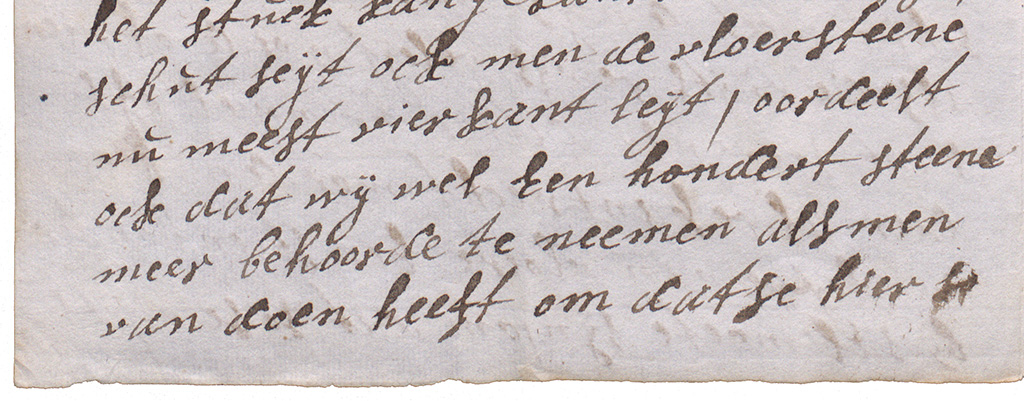 het stuck
schut seÿt ock men de vloersteene
nu meest vierkant leÿt / oordeelt
ock dat wÿ wel Een hondert steene
meer behoorde te neemen alsmen
van doen heeft om datse hier